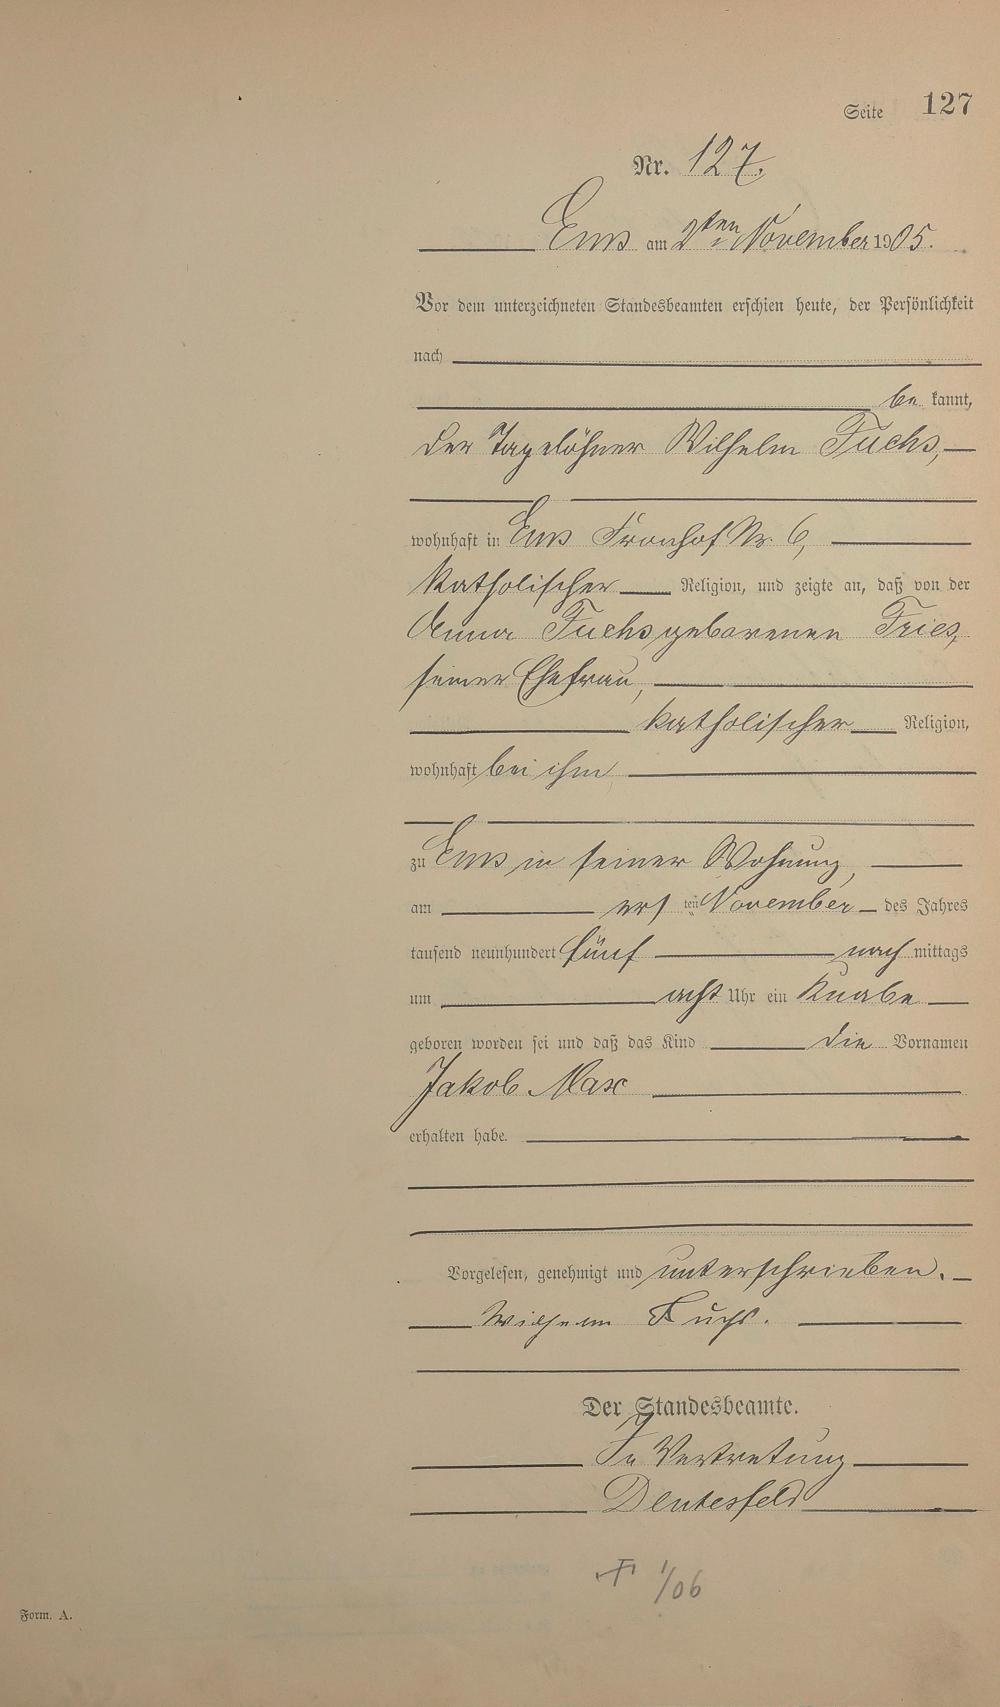 Seite 127
Nr. 127.
Ems am 2ten November 1905.
Vor dem unterzeichneten Standesbeamten erschien heute, der Persönlichkeit
nach
be kannt,
der Tagelöhner Wilhelm Fuchs,
wohnhaft in Ems Fronhof Nr. 6,
katholischer Religion, und zeigte an, daß von der
Anna Fuchs geborenen Fries,
seiner Ehefrau,
katholischer Religion,
wohnhaft bei ihm
zu Ems in seiner Wohnung,
am ersten November des Jahres
tausend neunhundert fünf nach mittags
um acht Uhr ein Knabe
geboren worden sei und daß das Kind die Vornamen
Jakob Max
erhalten habe.
Vorgelesen, genehmigt und unterschrieben.
Wilhelm Fuchs.
Der Standesbeamte.
In Vertretung
1/06
Form. A.